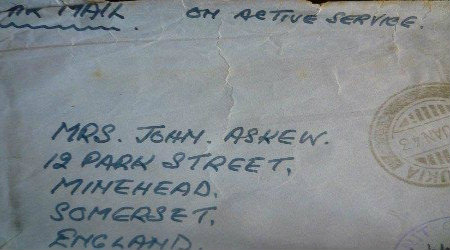 AIR MAIL. ON ACTIVE SERVICE.
MRS. JOHN. ASKEW.
12 PARK STREET.
MINEHEAD.
SOMERSET.
ENGLAND.
JAN 43